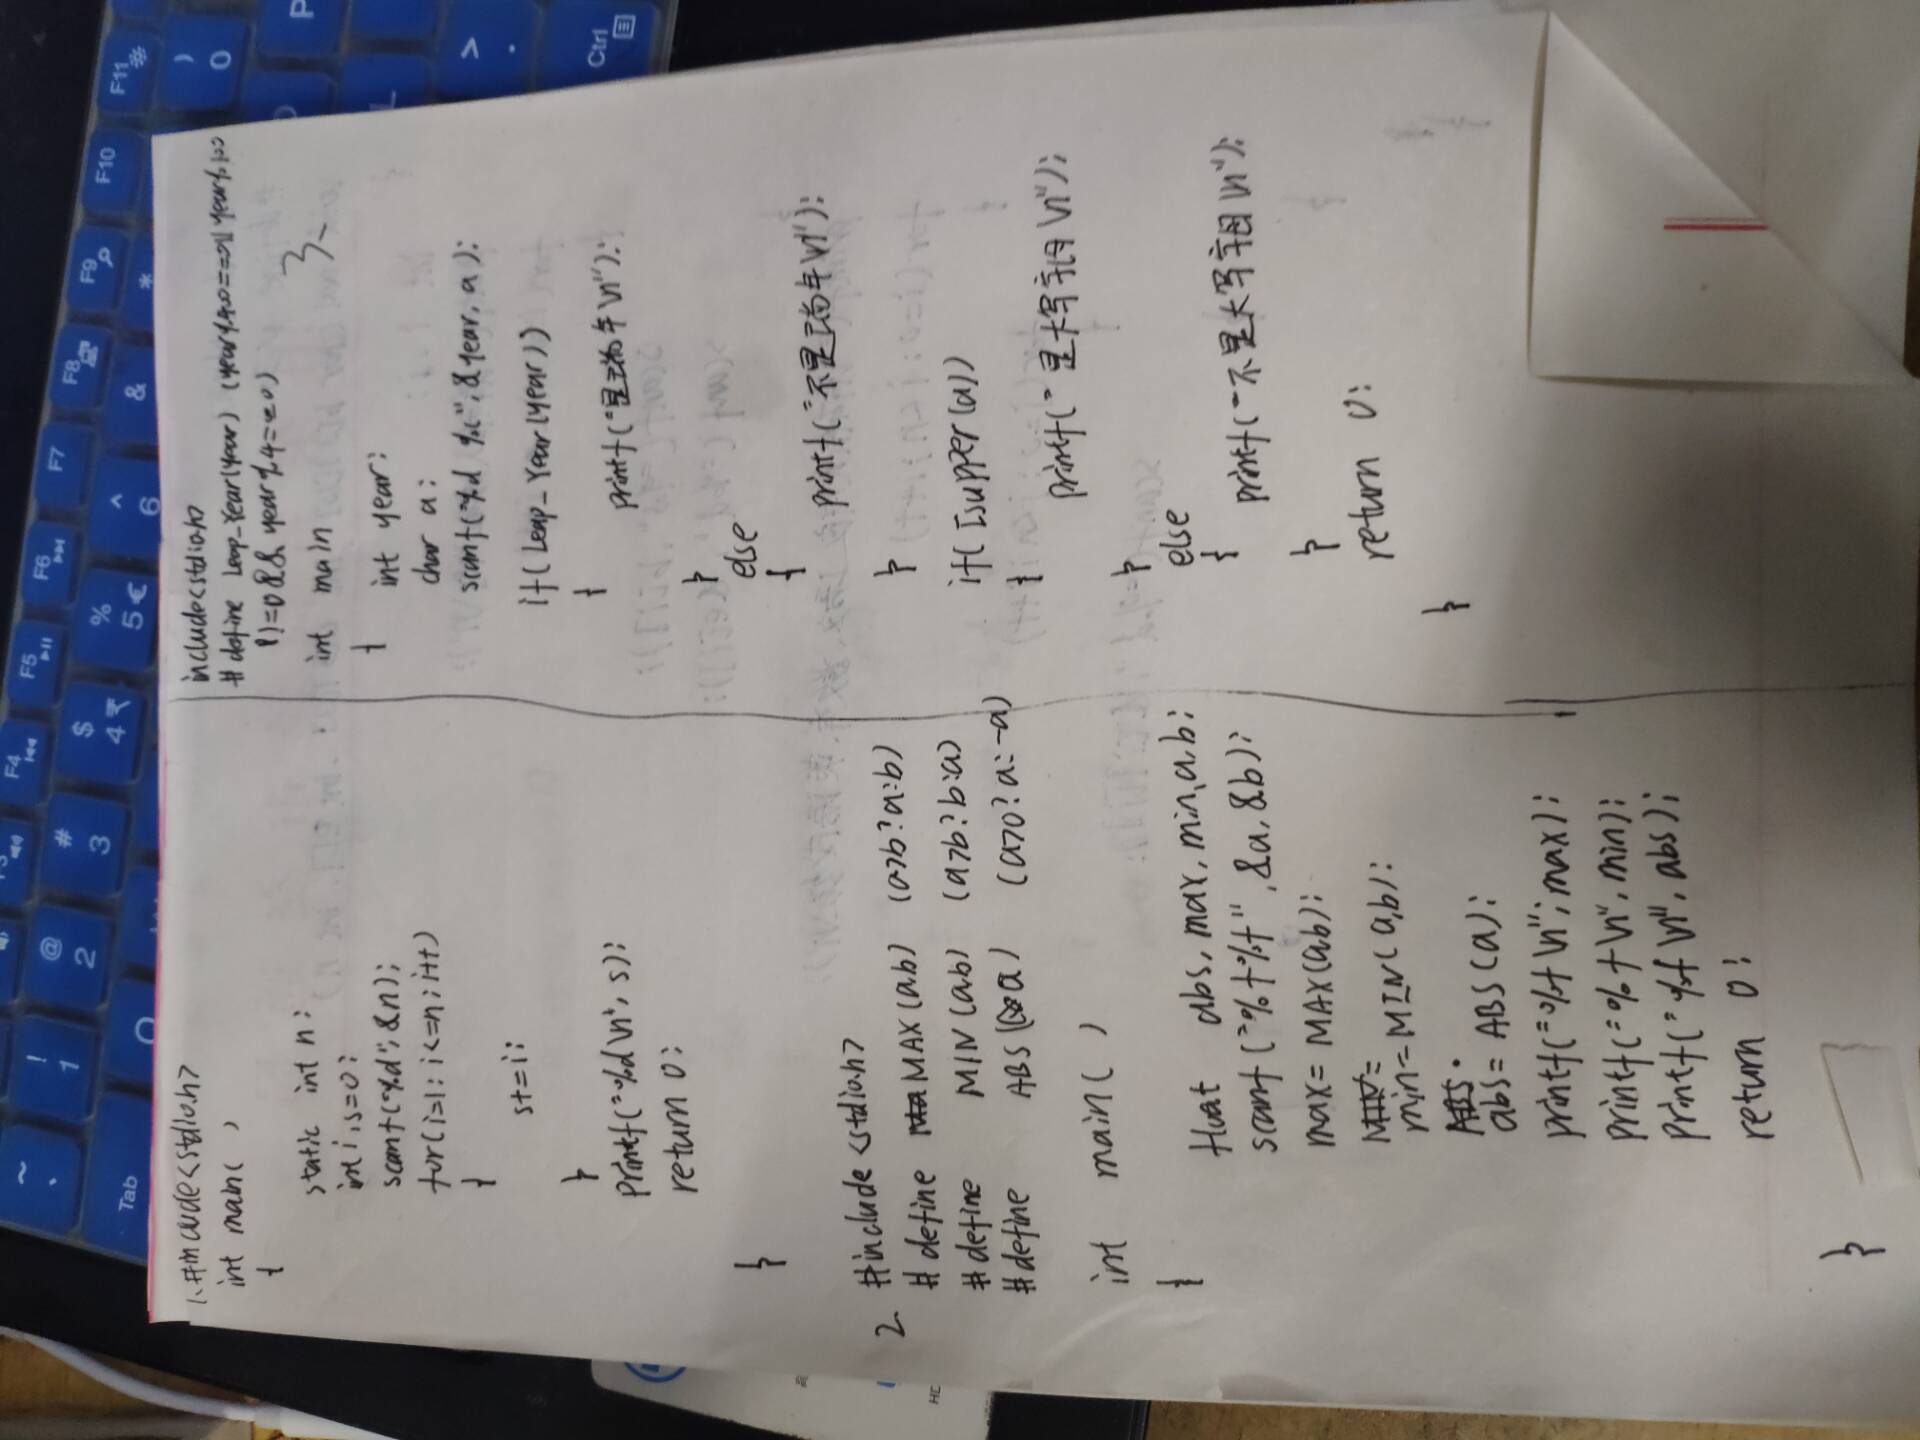 1. #include<stdio.h>
int main( )
{
static int n;
int i,s=0;
scanf("%d",&n);
for(i=1; i<=n; i++)
{
s+=i;
}
printf("%d\n",s);
return 0;
}
2. #include <stdio.h>
#define MAX(a,b) (a>b?a:b)
#define MIN(a,b) (a>b?b:a)
#define ABS(a) (a>0?a:-a)
int main( )
{
float abs, max, min, a,b;
scanf("%f%f",&a,&b);
max=MAX(a,b);
min=MIN(a,b);
abs=ABS(a);
printf("%f\n",max);
printf("%f\n",min);
printf("%f\n",abs);
return 0;
}
3、
include<stdio.h>
#define Leap_Year(year) (year%400==0||year%100
!=0&&year%4==0)
int main
{
int year;
char a;
scanf("%d %c",&year,a);
if(Leap_Year(year))
{
printf("是闰年\n");
}
else
{
printf("不是闰年\n");
}
if(Isupper(a))
{
printf("是大写字母\n");
}
else
{
printf("不是大写字母\n");
}
return 0;
}
F11
F10
F9
F8
F7
F6
F5
F4
F3
)
0
*
&
^
6
%
5 €
$
4 ₹
#
3
@
2
!
1
~
Tab
Q
P
L
>
.
Ctrl